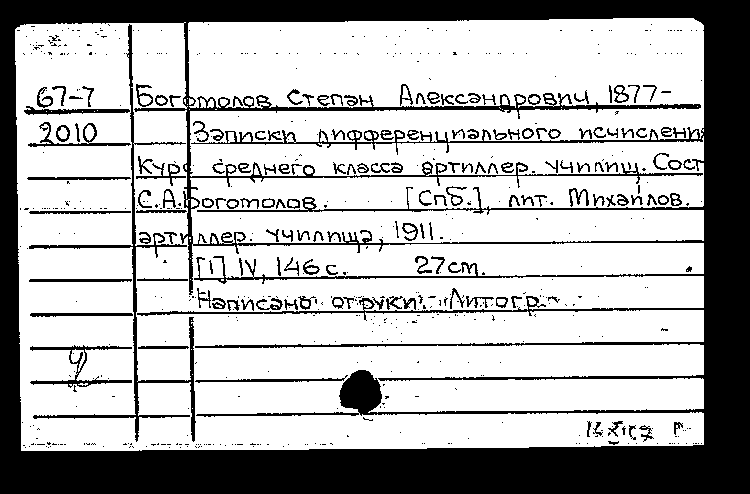 67-7 Богомолов, Степан Александрович, 1877-
2010 Записки дифференциального исчислени
Курс среднего класса артиллер. училищ. Сост
С.А.Богомолов. [Спб.], лит. Михайлов.
артиллер. училища, 1911.
[1] IV, 146 с. 27 см.
Написано от руки. Литогр.